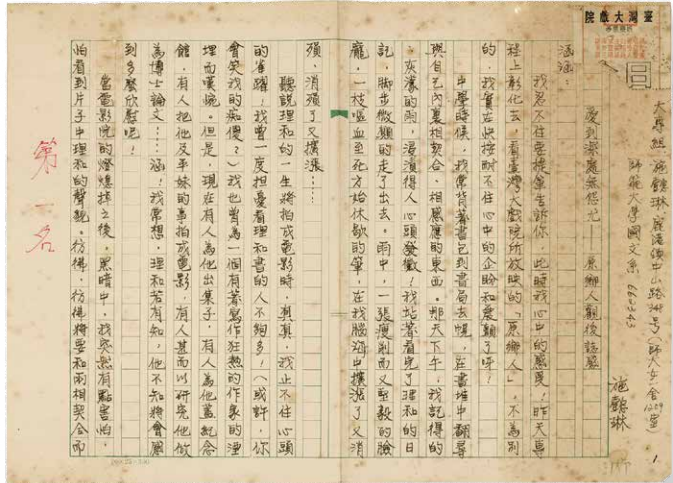 臺灣大戲院
大專組 施懿琳 鹿港鎮中山路
師範大學國文系
施懿琳
1
愛到深處無怨尤——原鄉人觀後誌感
涵涵：
我忍不住要提筆告訴你，此時我心中的感受，昨天專
程上彰化去，看臺灣大戲院所放映的「原鄉人」，不為別
的，我實在快按耐不住心中的企盼和愛顧了呀！
中學時候，我常背著書包到書局去慌，在書堆中翻尋
與自己內裏相契合，相感應的東西。那天下午，我記得的
，灰濛的雨，浸濆得人心頭發黴！我站著看完了理和的日
記，脚步微顛的走了出去。雨中，一張瘦削而又堅毅的臉
龐，一枝嘔血至死方始休歇的筆，在我腦海中擴漲了又消
殞，消殞了又擴漲……
聽說理和的一生將拍成電影時，真真，我止不住心頭
的雀躍！我曾一度担憂看理和書的人不夠多！（或許，你
會笑我的痴傻？）我也曾為一個有著寫作狂熱的作家的湮
埋而嘆惋。但是，現在有人為他出集子，有人為他蓋紀念
館，有人把他及平妹的事拍成電影，有人甚而以研究他做
為博士論文……涵！我常想，理和若有知，他不知將會感
到多麼欣慰呢！
當電影院的燈熄掉之後，黑暗中，我突然有點害怕，
怕看到片子中理和的聲貌。彷彿，彷彿將要和兩相契合而
第一名